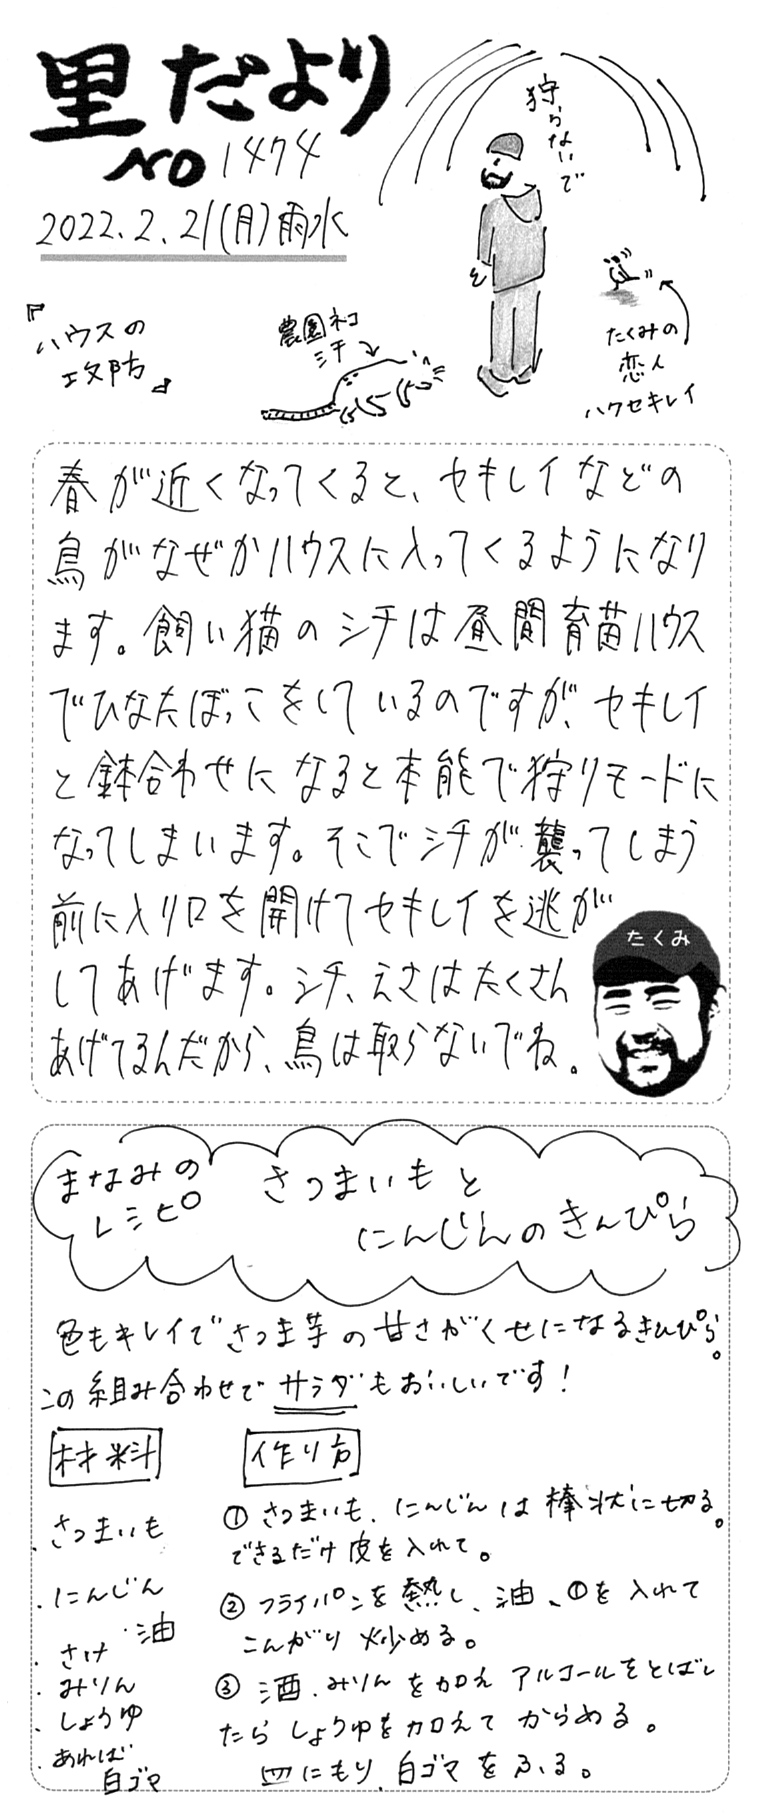 里だより
NO 1474
2022.2.21(月)雨水
狩らないで
『ハウスの
攻防』
農園ネコ
シチ
たくみの
恋人
ハクセキレイ
春が近くなってくると、セキレイなどの
鳥がなぜかハウスに入ってくるようになり
ます。飼い猫のシチは昼間育苗ハウス
でひなたぼっこをしているのですが、セキレイ
と鉢合わせになると本能で狩りモードに
なってしまいます。そこでシチが襲ってしまう
前に入り口を開けてセキレイを逃が
してあげます。シチ、えさはたくさん
あげてるんだから、鳥は取らないでね。
たくみ
まなみの
レシピ
さつまいもと
にんじんのきんぴら
色もキレイでさつま芋の甘さがくせになるきんぴら。
この組み合わせでサラダもおいしいです!
材料
・さつまいも
・にんじん
・油
・さけ
・みりん
・しょうゆ
・あれば
白ゴマ
作り方
①さつまいも、にんじんは棒状に切る。
できるだけ皮を入れて。
②フライパンを熱し、油、①を入れて
こんがり炒める。
③酒、みりんを加え アルコールをとばし
たらしょうゆを加えてからめる。
皿にもり、白ゴマをふる。